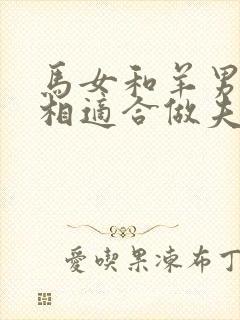 馬女和羊男
相適合做夫
愛喫果凍布丁